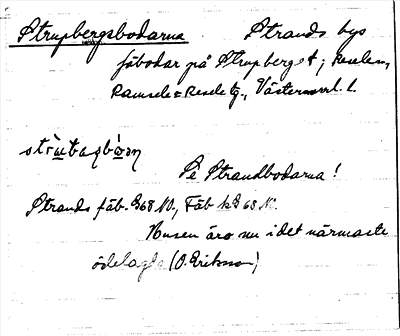 Strupbergsbodarna Strands bys
fäbodar på Strupberget, Resele sn,
Ramsele o Resele tg., Västernorrl. l.
Se Strandbodarna!
Strands fäb. 368 NO, Fäb k 368 N.
Husen äro nu i det närmaste
ödelagda (O. Erikson)